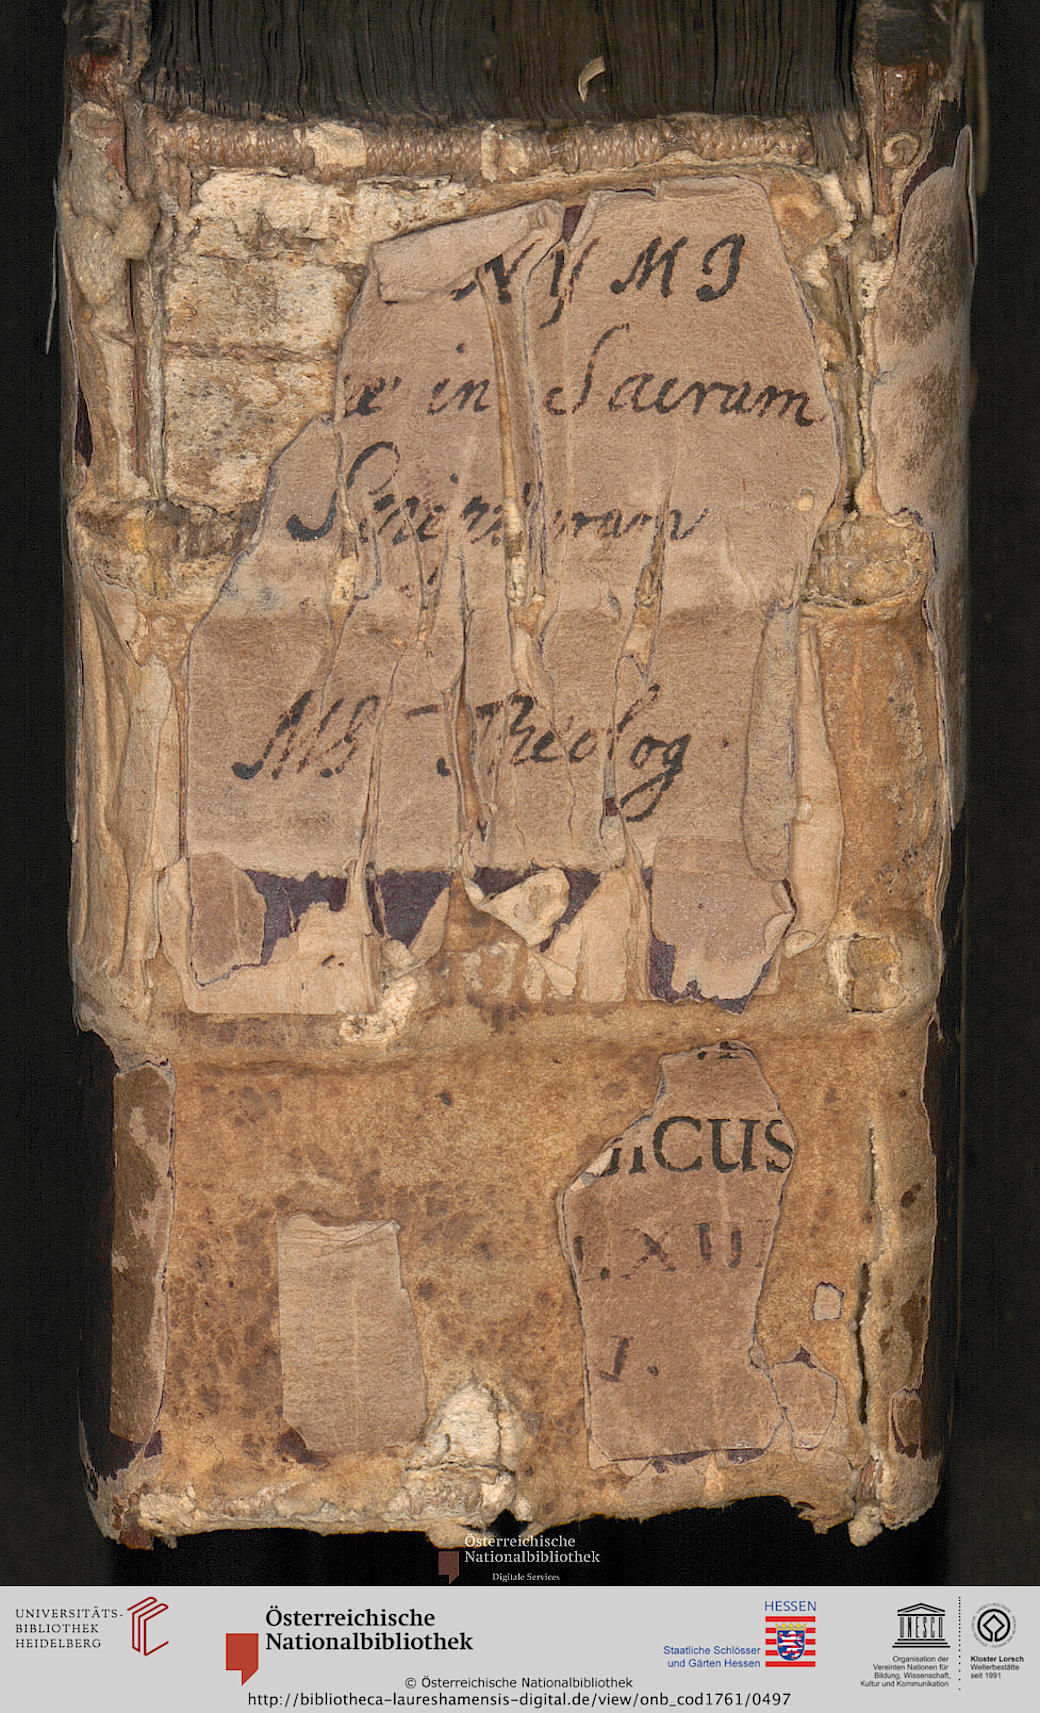 NYMI
æ in Sacram
MS Theolog
ICUS
LXII
1.
Österreichische
Nationalbibliothek
Digitale Services
UNIVERSITÄTS-
BIBLIOTHEK
HEIDELBERG
Österreichische
Nationalbibliothek
HESSEN
Staatliche Schlösser
und Gärten Hessen
UNESCO
Organisation der
Vereinten Nationen für
Bildung, Wissenschaft,
Kultur und Kommunikation
Kloster Lorsch
Welterbestätte
seit 1991
© Österreichische Nationalbibliothek
http://bibliotheca-laureshamensis-digital.de/view/onb_cod1761/0497